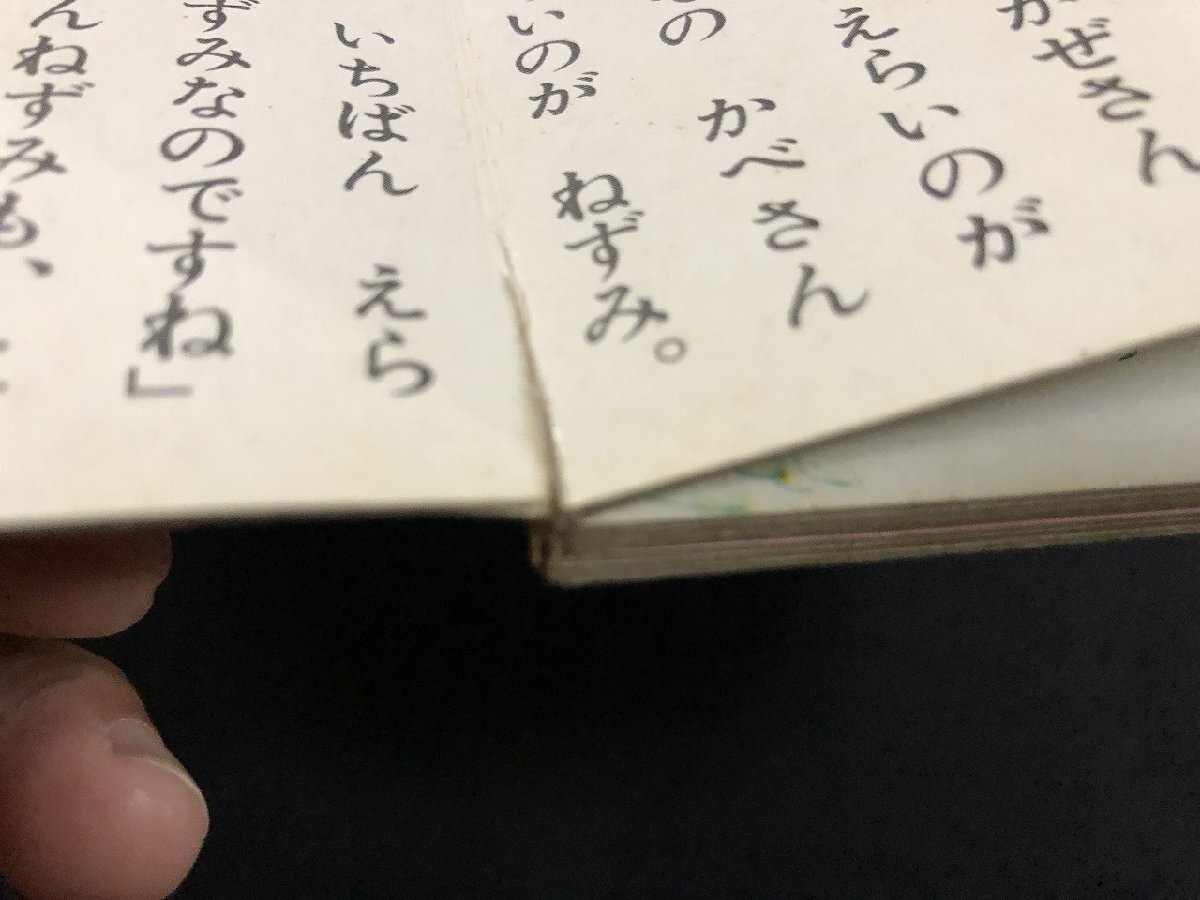 かぜさん
えらいのが
の かべさん
いのが ねずみ。
いちばん えら
ずみなのですね」
んねずみも、